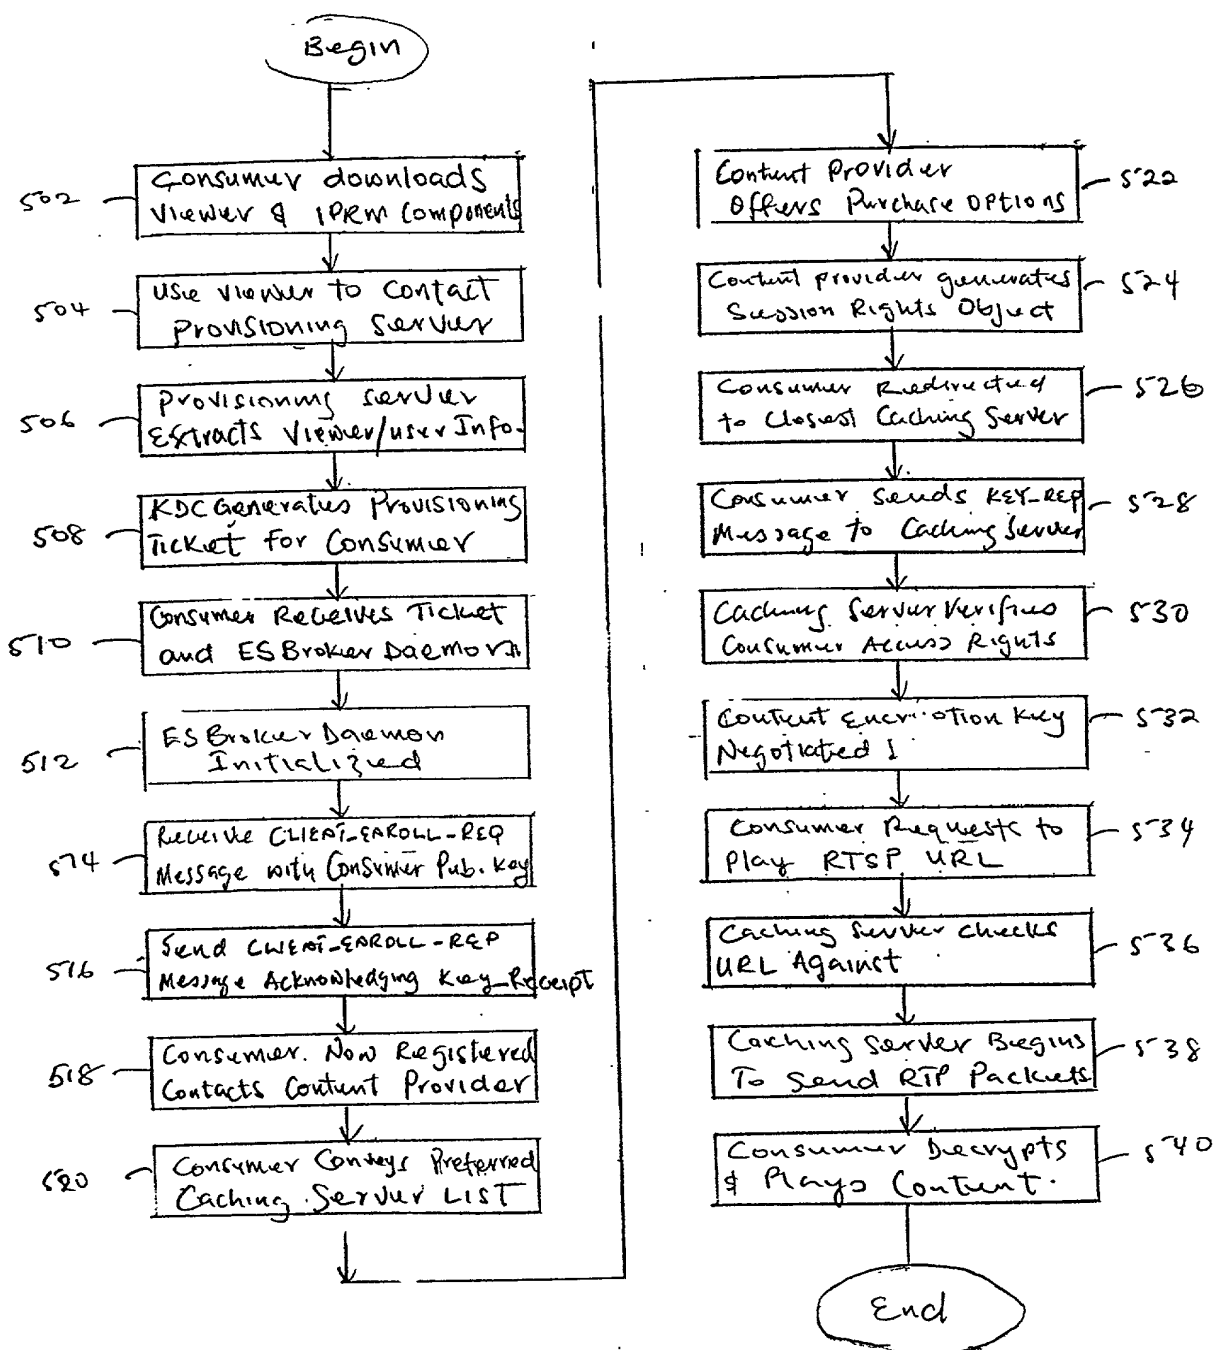 Begin
502
Consumer downloads
Viewer & IPRM Components
504
Use Viewer to Contact
Provisioning Server
506
Provisioning Server
Extracts Viewer/User Info.
508
KDC Generates Provisioning
Ticket For Consumer
510
Consumer Receives Ticket
and ES Broker Daemon
512
ES Broker Daemon
Initialized
514
Receive CLIENT_ENROLL_REQ
Message with Consumer Pub. Key
516
Send CLIENT_ENROLL_REP
Message Acknowledging Key_Receipt
518
Consumer Now Registered
Contacts Content Provider
520
Consumer Conveys Preferred
Caching Server LIST
Content Provider
Offers Purchase Options
522
Content provider generates
Session Rights Object
524
Consumer Redirected
to Closest Caching Server
526
Consumer Sends KEY_REP
Message to Caching Server
528
Caching Server Verifies
Consumer Access Rights
530
Content Encryption Key
Negotiated
532
Consumer Requests to
Play RTSP URL
534
Caching Server Checks
URL Against
536
Caching Server Begins
To Send RTP Packets
538
Consumer Decrypts
& Plays Content.
540
End